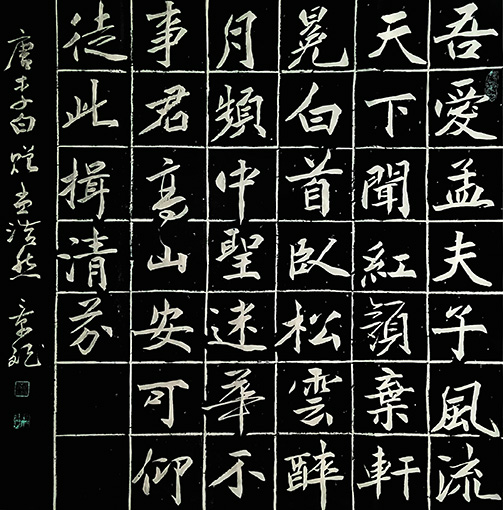 吾愛孟夫子風流
天下聞紅顏棄軒
冕白首臥松雲醉
月頻中聖迷華不
事君高山安可仰
徒此揖清芬
唐李白贈孟浩然